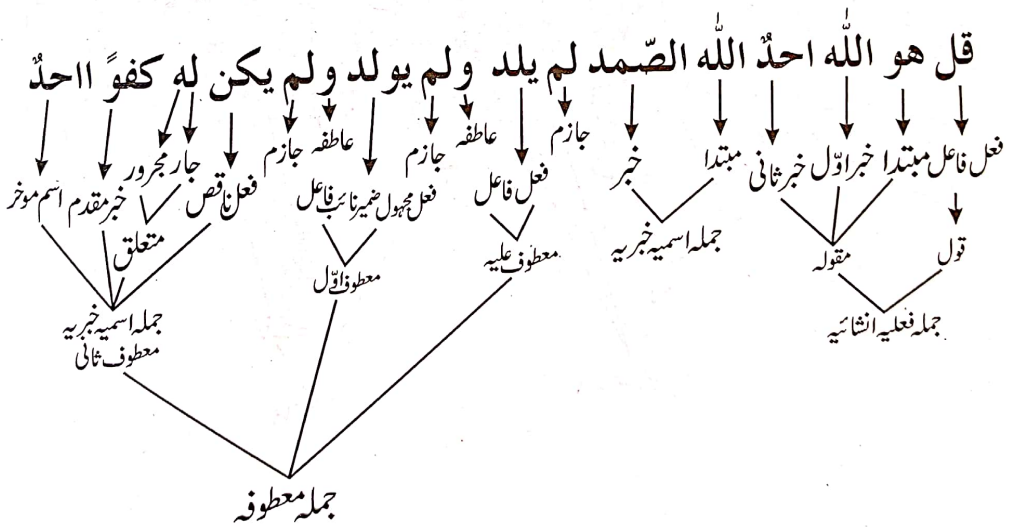 قل هو اللّٰه احدٌ اللّٰه الصّمد لم یلد ولم یولد ولم یکن له کفوً ااحدٌ
فعل فاعل مبتدا خبر اوّل خبر ثانی مبتدا خبر جازم فعل فاعل عاطفہ جازم فعل مجہول ضمیر نائب فاعل عاطفہ جازم فعل ناقص جار مجرور خبر مقدم اسم موخر
قول مقولہ جملہ اسمیہ خبریہ معطوف علیہ معطوف اوّل متعلق
جملہ فعلیہ انشائیہ جملہ اسمیہ خبریہ
معطوف ثانی
جملہ معطوفہ